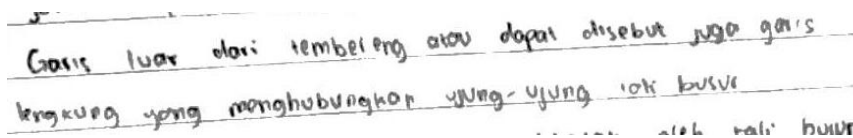 Garis luar dari tembereng atau dapat disebut juga garis
lengkung yang menghubungkan ujung-ujung tali busur
oleh tali busur